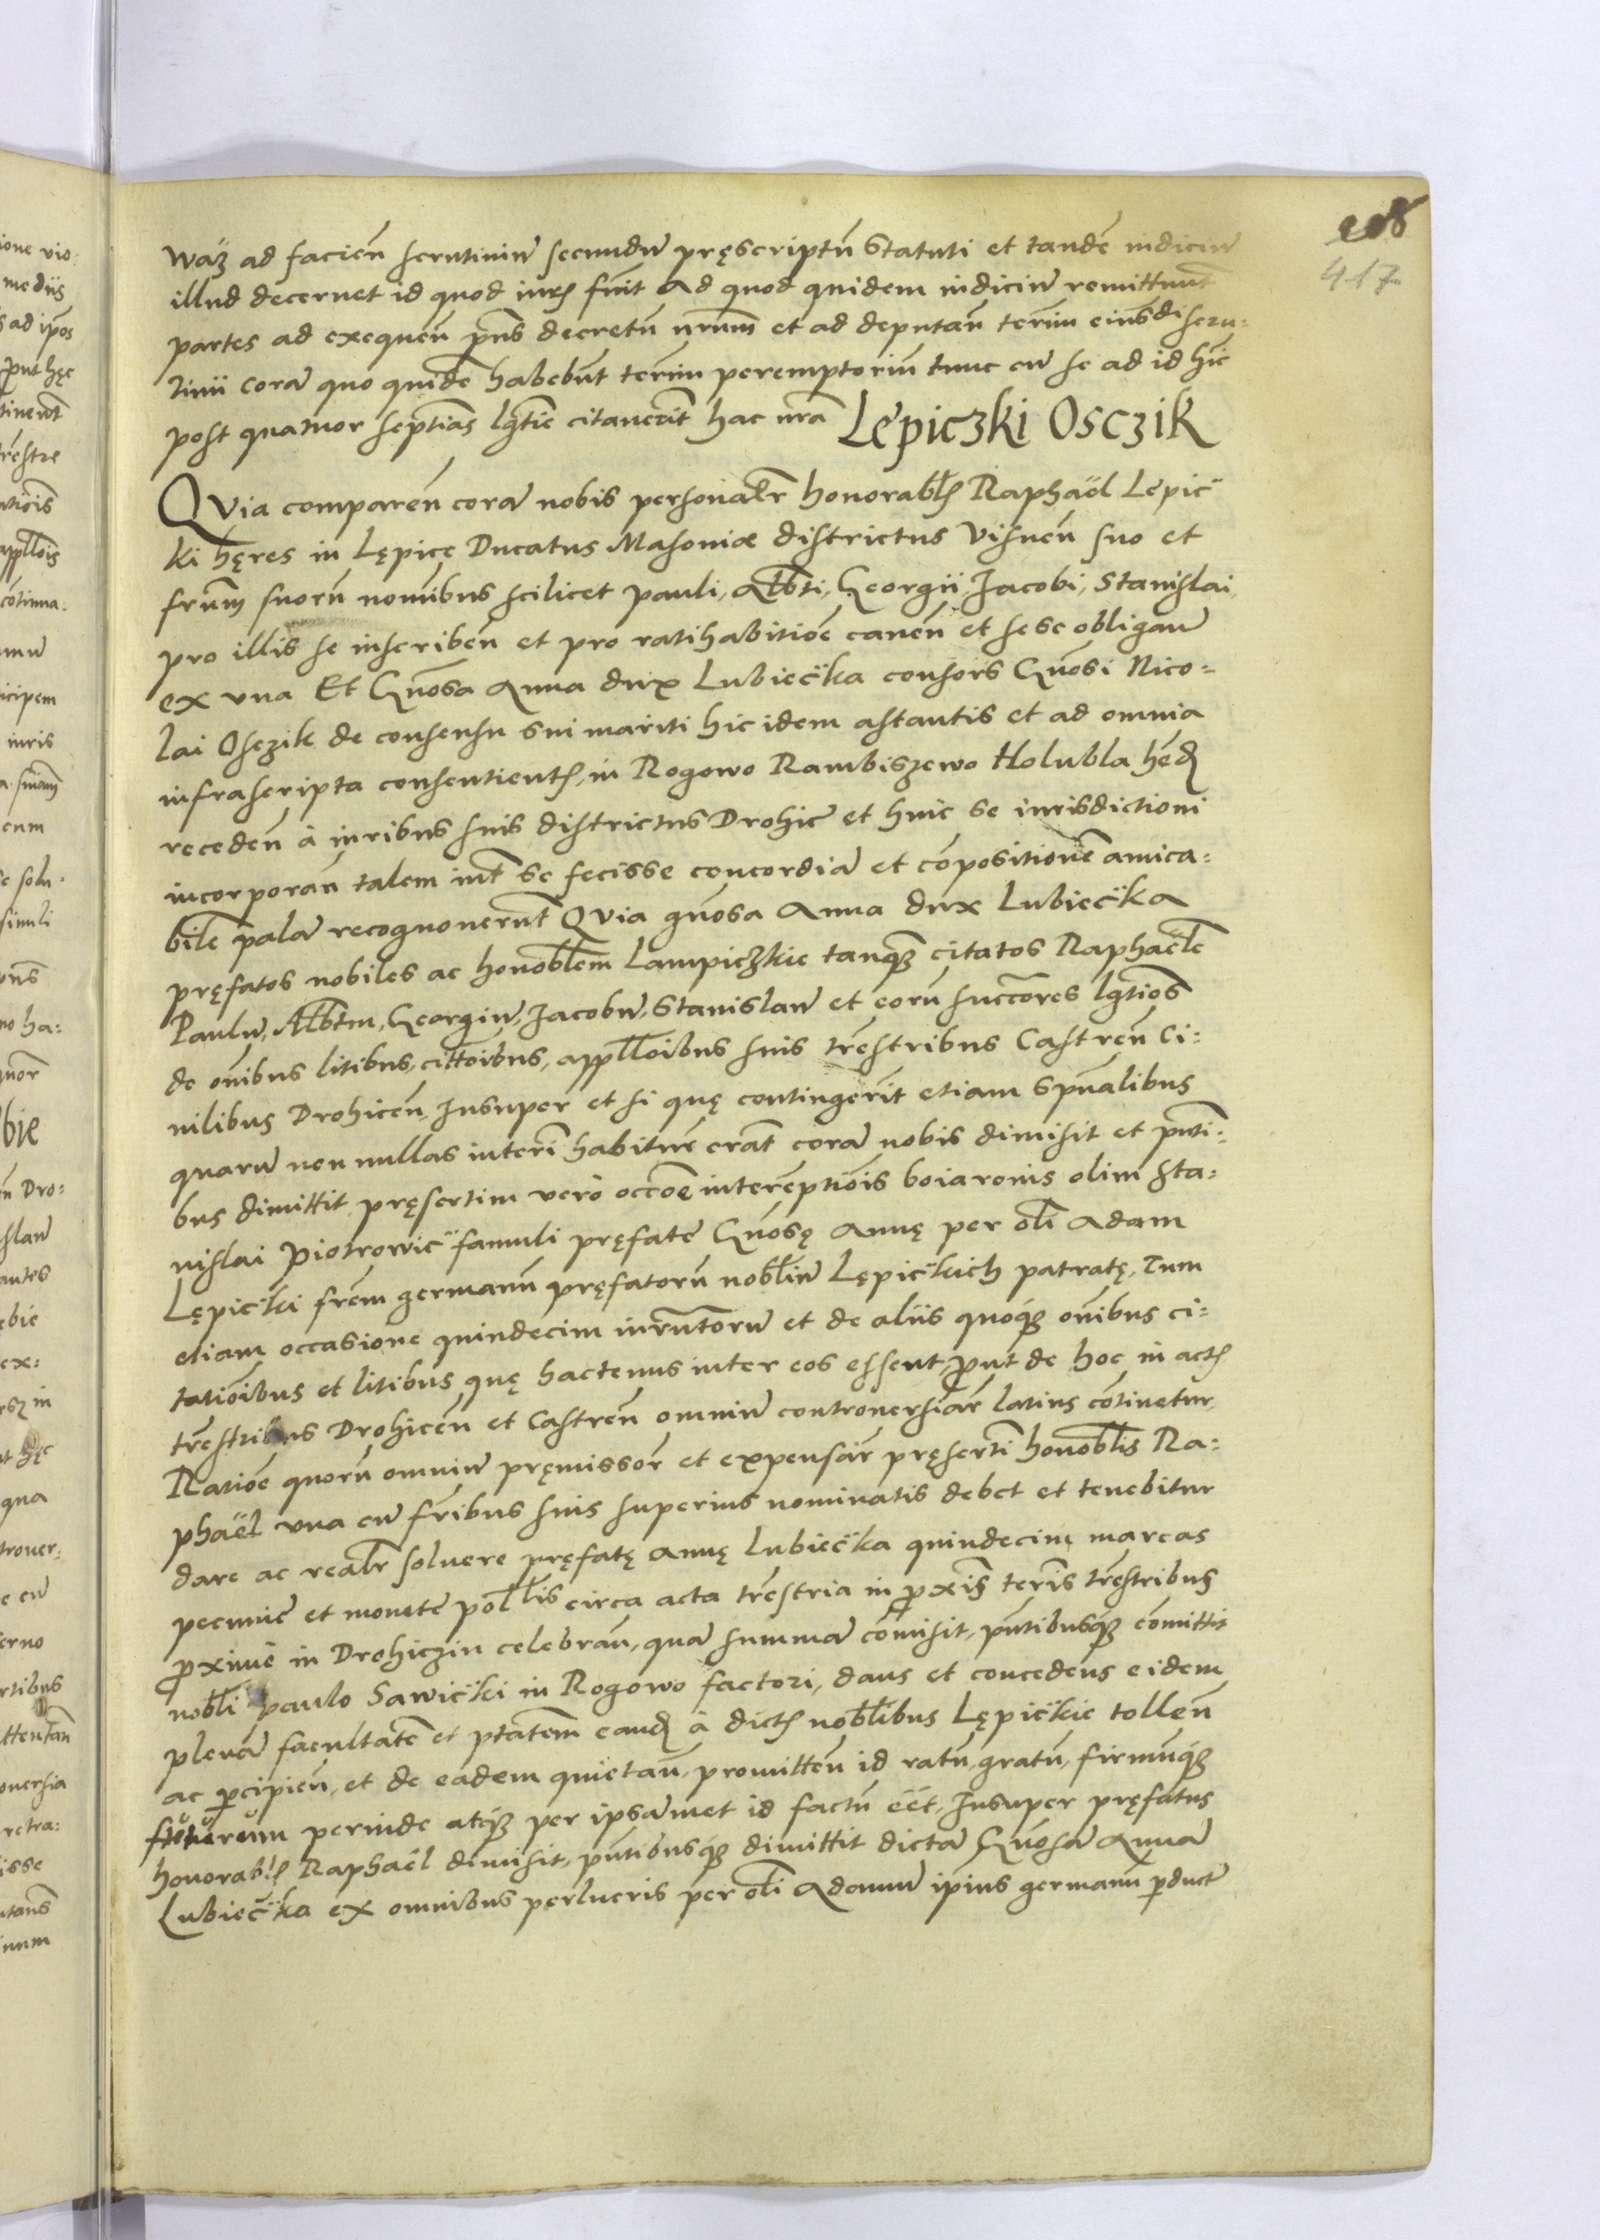 208
417
waz ad facien̄ scrutiniū secundū pręscriptū Statuti et tandē iudiciū
illud decernet id quod iur̄ fuit Ad quod quidem iudiciū remittunt̄
partes ad exequen̄ p̄ns decretū nr̄um et ad deputan̄ termī eiusdi scru-
tinii corā quo quidē habebūt termī peremptoriū tunc cū se ad id hīc
post quatuor septīas lgt̄ie citauerīt hac nr̄a Lepiczki Osczik
Quia comparen̄ corā nobis personalr̄ honorabl̄ Raphaël Lepic̈-
ki hęres in Lępice Ducatus Masoniæ districtus Visnen̄ suo et
fr̄um suorū nominibus scilicet pauli, Albr̄ti, Georgii, Jacobi, Stanislai,
pro illis se inscriben̄ et pro ratihabitiōe cauen̄ et sese obligan̄
ex vna Et Gn̄osa Anna dux Lubiec̈ka consors Gn̄osi Nico-
lai Osczik de consensu sui mariti hic idem astantis et ad omnia
infrascripta consentient̄, in Rogowo Rambiszewo Holubla hęd̄
receden̄ à iuribus suis districtus Drohic̄ et huic se iurisdictioni
incorporan̄ talem int̄ se fecisse concordiā et cōpositionem amica-
bilē palā recognouerunt Quia gn̄osa Anna dux Lubiec̈ka
pręfatos nobiles ac honobl̄em Lampiczkie tanq̄ȝ citatos Raphaëlē
Paulū, Albr̄tm, Georgiū, Jacobū, Stanislaū et eorū succōres lgt̄ios
de ōnibus litibus, citt̄oibus, appll̄oibus suis tr̄estribus Castren̄ Ci-
uilibus Drohicen̄ Insuper et si quę contingerīt etiam spūalibus
quarū non nullas interī habiturę erāt corā nobis dimisit et pn̄ti-
bus dimittit pręsertim verò occōe interēptiōis boiaronis olim Sta-
nislai Piotrowic̈ famuli pręfatę Gn̄osę Annę per olī Adam
Lępic̈ki fr̄em germanū pręfatorū nobliū Lępic̈kich patratę, Tum
etiam occasione quindecim iur̄ntorū et de aliis quoq̄ȝ ōnibus ci-
tatiōibus et litibus quę hactenus inter eos essent prout de hoc in act̄
tr̄estribus Drohicen̄ et Castren̄ omniū controuersiar̄ latius cōtinetur
Ratiōe quorū omniū pręmissor̄ et expensar̄ pręsertī honobl̄is Ra-
phaël vna cū fr̄ibus suis superius nominatis debet et tenebitur
dare ac realr̄ soluere pręfatę Annę Lubiec̈ka quindecim marcas
pecunię et monetę poll̄is circa acta tr̄estria in proxīs termīs tr̄estribus
proximè in Drohiczin celebran̄, quā summā cōmisit, pn̄tibusq̄ȝ cōmittit
nobl̄i paulo Sawic̈ki in Rogowo factori, dans et concedens eidem
plenā facultatē et ptātem eand̄ à dict̄ nobl̄ibus Lępic̈kie tollen̄
ac percipien̄, et de eadem quietan̄, promitten̄ id ratū, gratū, firmūq̄ȝ
futurum perinde atq̄ȝ per ipsamet id factū eēt, Insuper pręfatus
honorabl̄ Raphaël dimisit, pn̄tibusq̄ȝ dimittit dictā Gn̄osā Annā
Lubiec̈ka ex omnibus perlucris per olī Adamū ipius germanū perductę